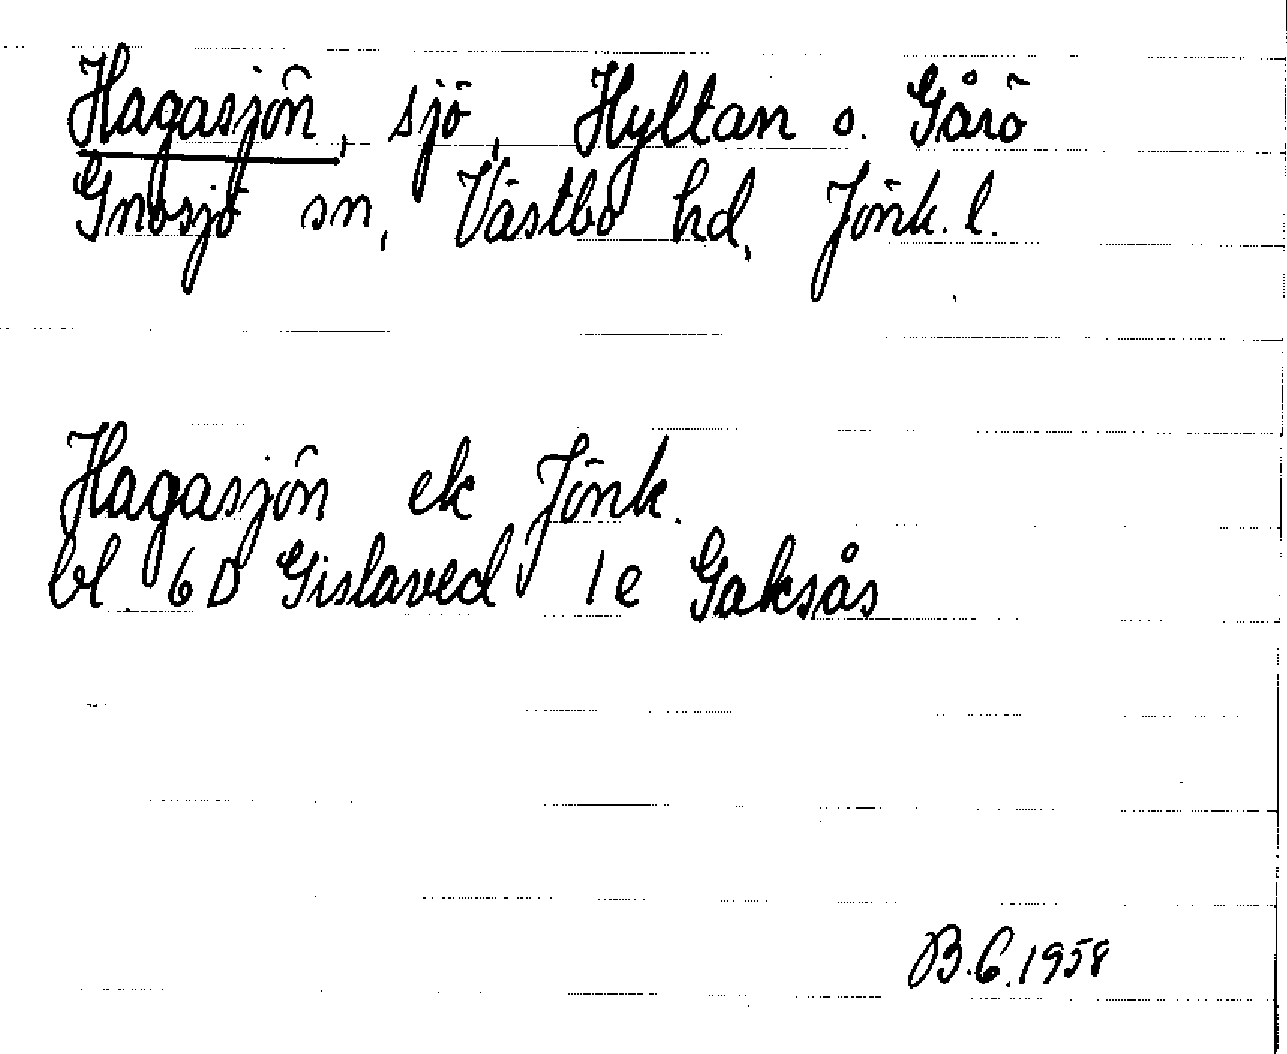 Hagasjön, sjö, Hyltan o. Gårö
Gnosjö sn, Västbo hd, Jönk. l.
Hagasjön ek Jönk.
bl 6D Gislaved 1e Gaksås
B.G.1958